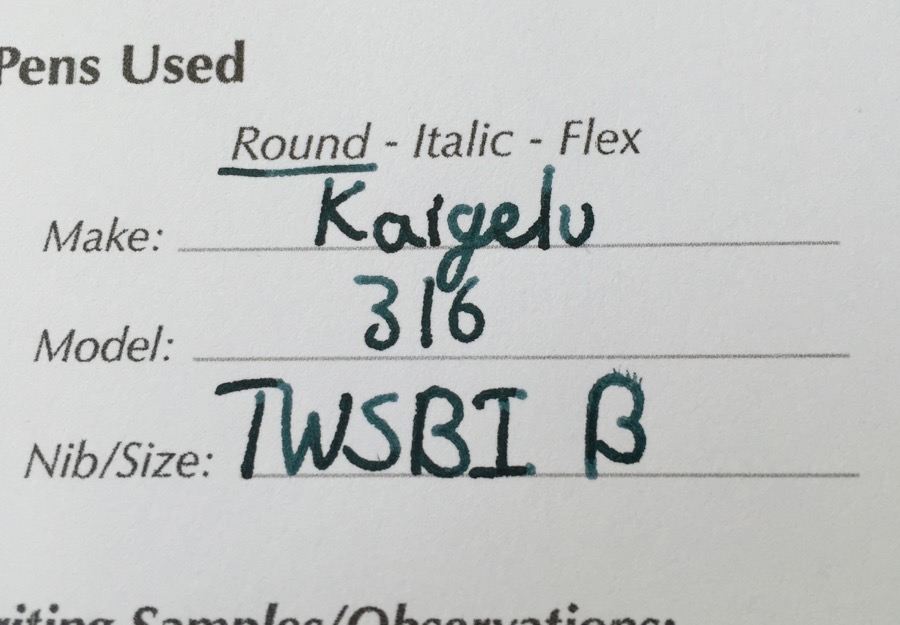 Pens Used
Round - Italic - Flex
Make: Kaigelu
Model: 316
Nib/Size: TWSBI B
riting Samples/Observations: